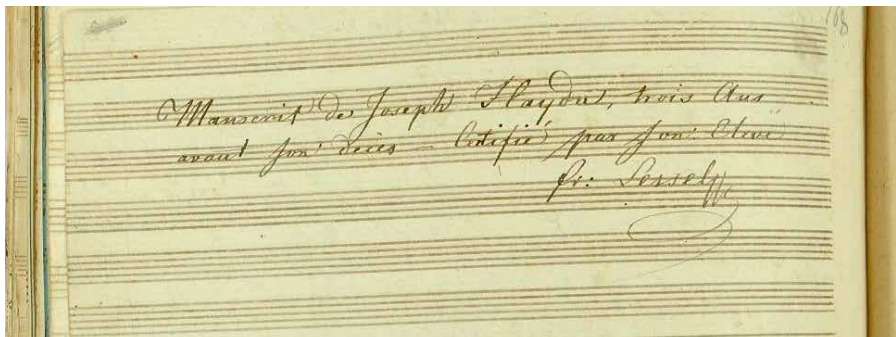 168
Manuscrit de Joseph Haydn, trois Ans
avant son décès – Cetifié par son Eleve
fr: Lessel